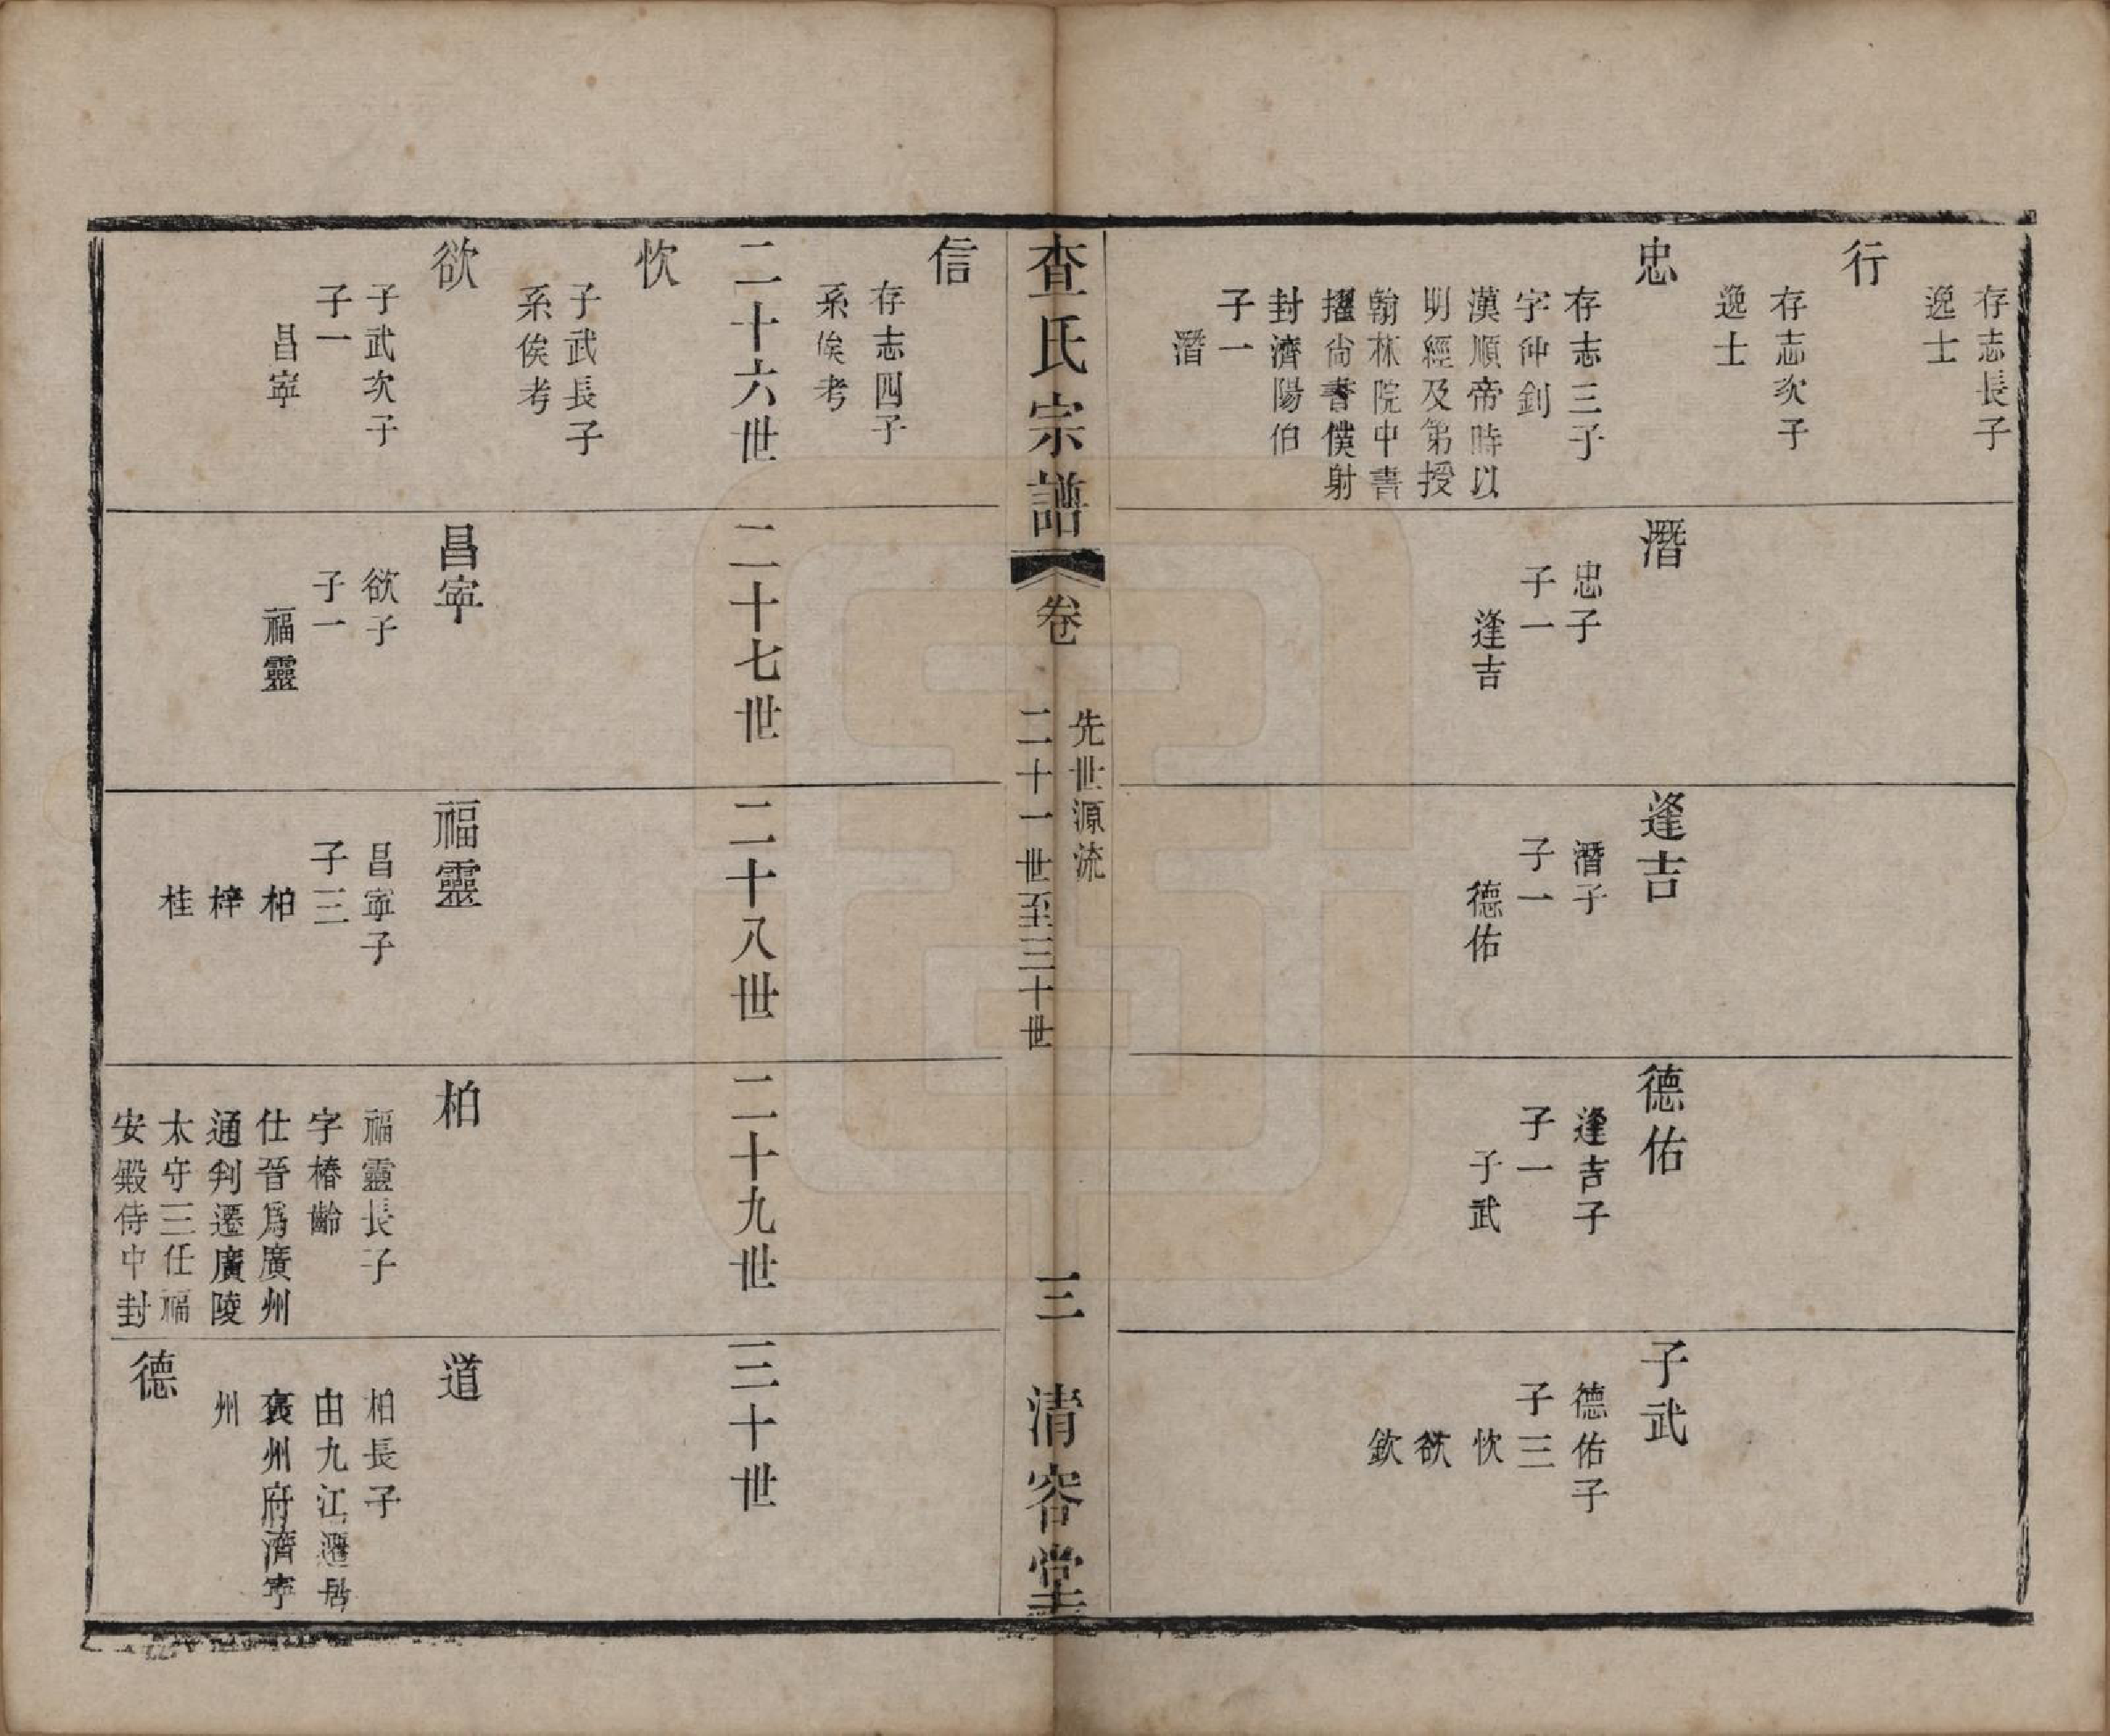 存志長子
逸士
行
存志次子
逸士
忠
存志三子
字仲釗
漢順帝時以
明經及第授
翰林院中書
擢尙書僕射
封濟陽伯
子一
潛
潛
忠子
子一
逢吉
逢吉
潛子
子一
德佑
德佑
逢吉子
子一
子武
子武
德佑子
子三
忺
欲
欽
查氏宗譜
卷
先世源流
二十一世至三十世
三
清容堂
信
存志四子
系俟考
二十六世
忺
子武長子
系俟考
欲
子武次子
子一
昌寧
二十七世
昌寧
欲子
子一
福靈
二十八世
福靈
昌寧子
子三
柏
梓
桂
二十九世
柏
福靈長子
字椿齡
仕晉爲廣州
通判遷廣陵
太守三任福
安殿侍中封
三十世
道
柏長子
由九江遷居
兗州府濟寧
州
德